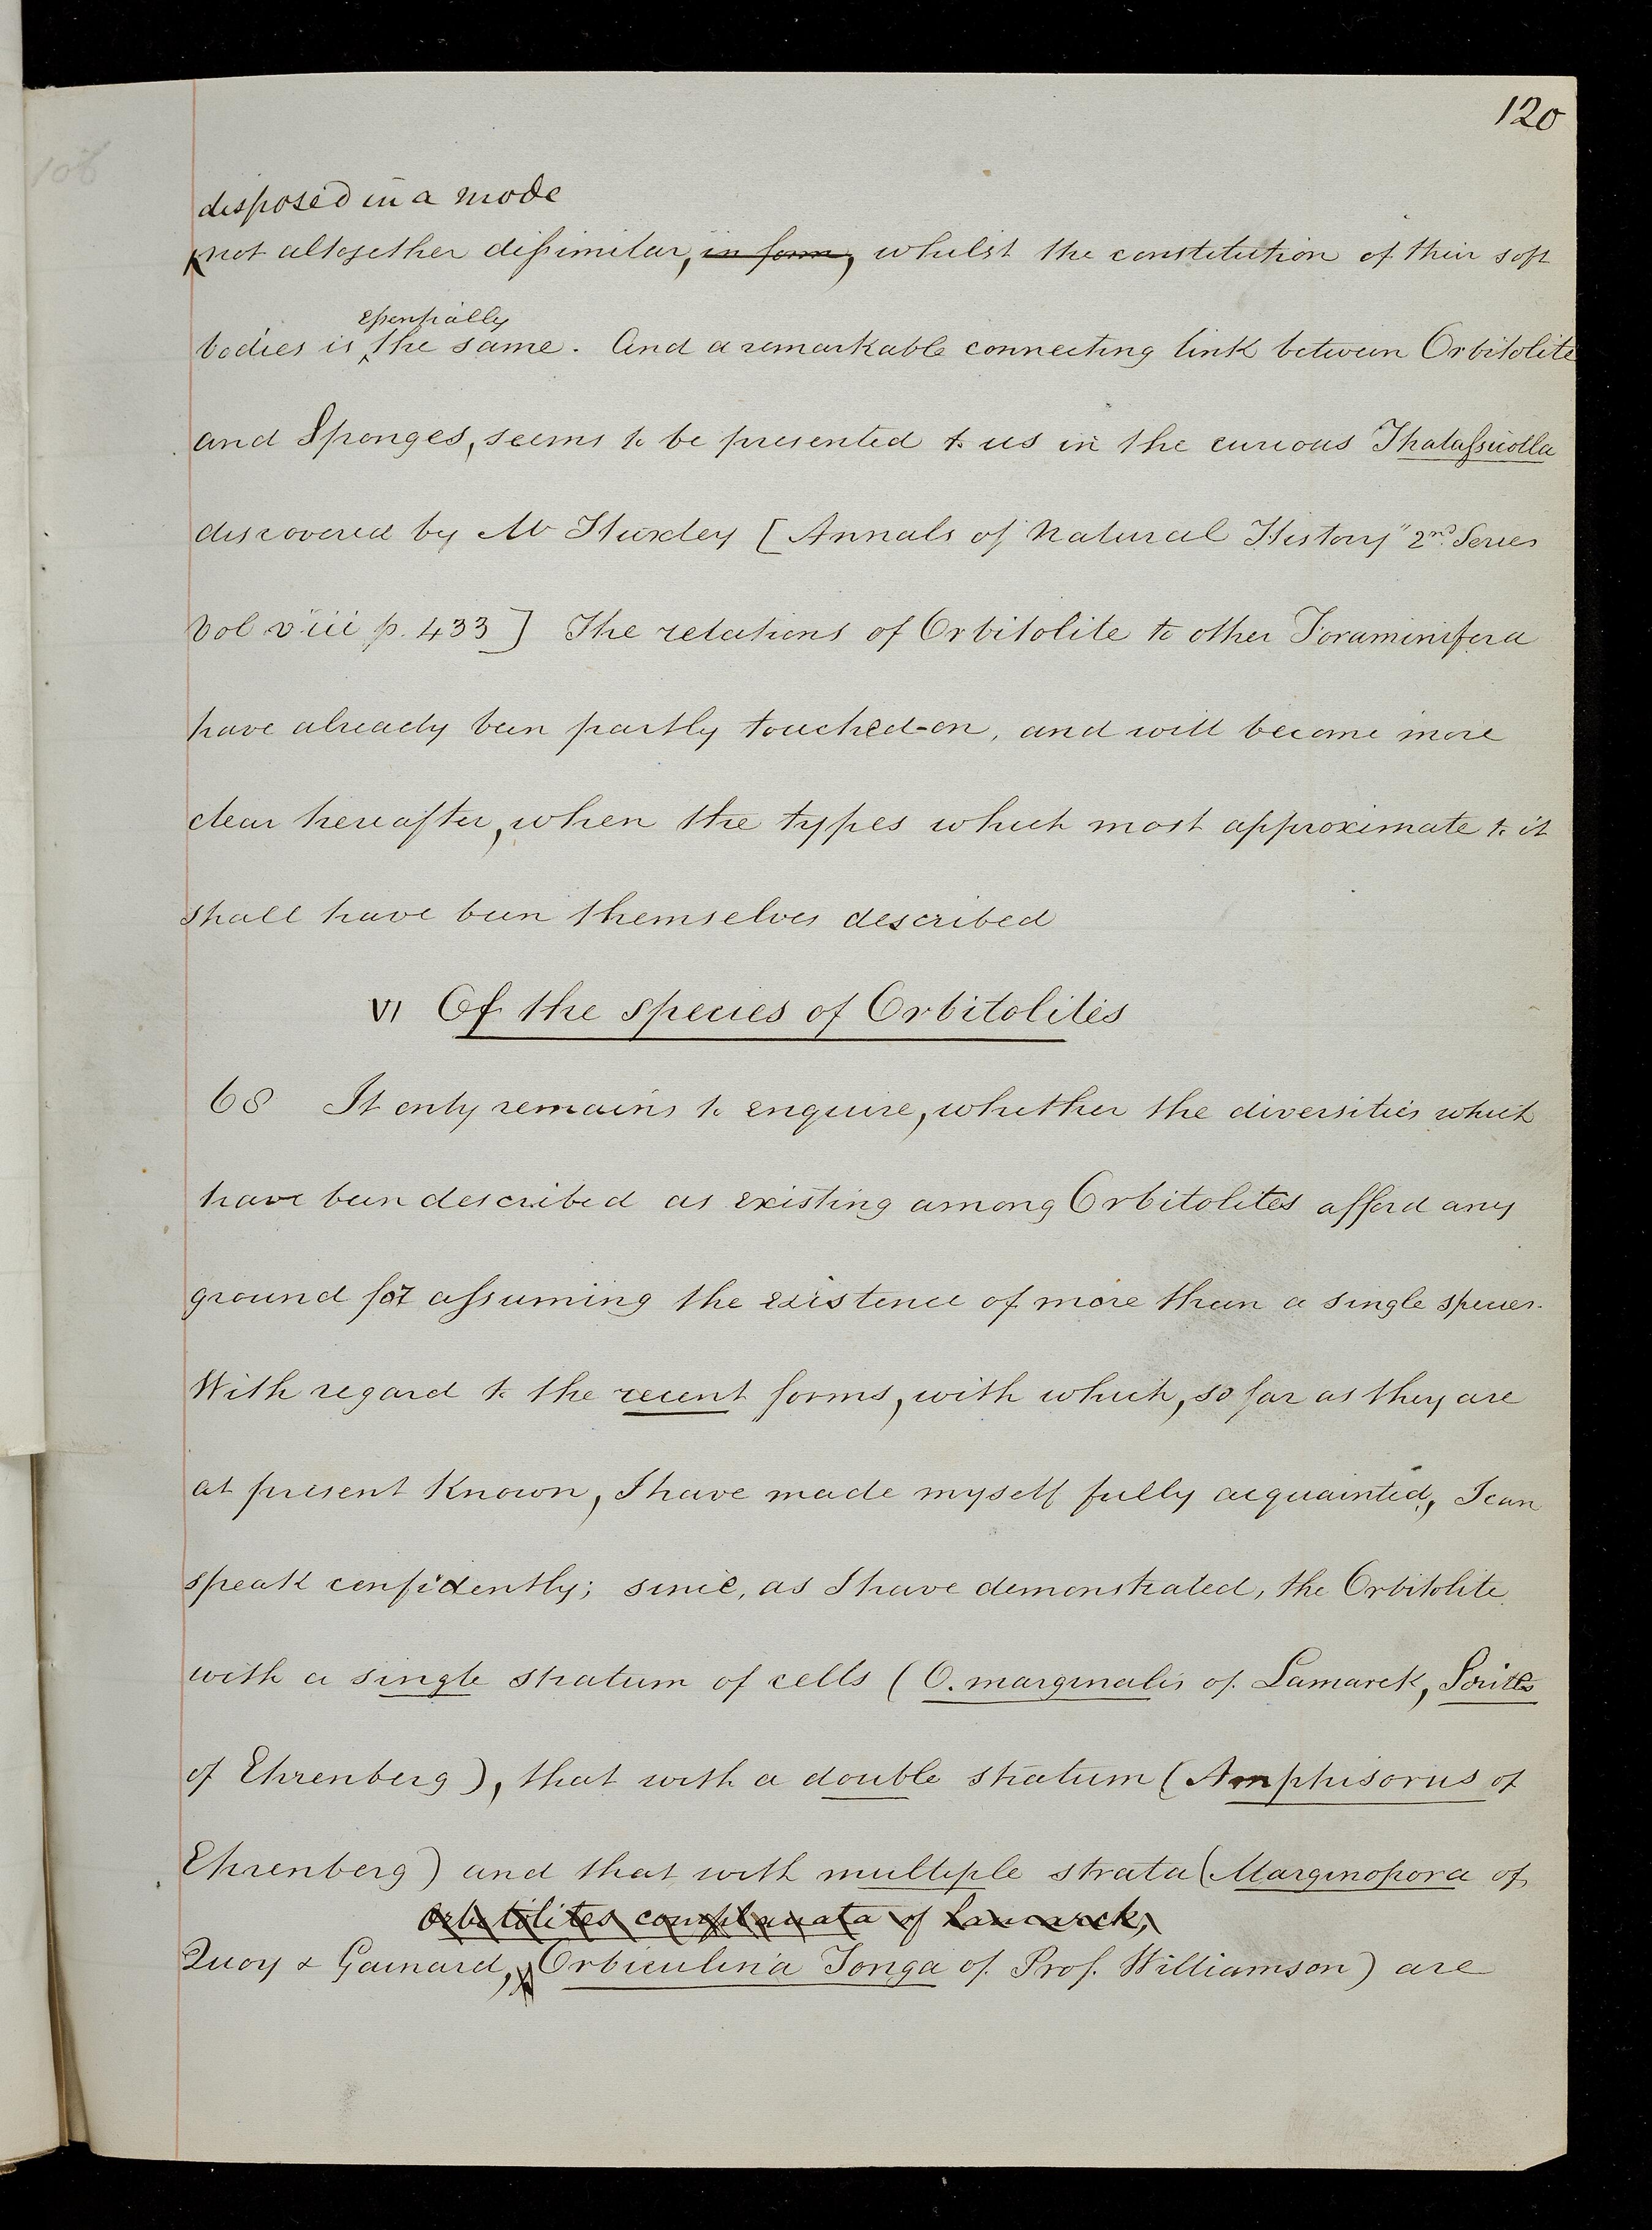 120
disposed in a mode
not altogether dissimilar, in form, whilst the constitution of their soft
essentially
bodies is the same. And a remarkable connecting link between Orbitolite
and Sponges, seems to be presented to us in the curious Thalassicolla
discovered by Mr Huxley [Annals of Natural History" 2nd Series
Vol viii p. 433] The relations of Orbitolite to other Foraminifera
have already been partly touched-on, and will become more
clear hereafter, when the types which most approximate to it
shall have been themselves described
VI Of the species of Orbitolites
68 It only remains to enquire, whether the diversities which
have been described as existing among Orbitolites afford any
ground for assuming the existence of more than a single species.
With regard to the recent forms, with which, so far as they are
at present known, I have made myself fully acquainted, I can
speak confidently; since, as I have demonstrated, the Orbitolite
with a single stratum of cells (O. marginalis of Lamarck, Sorites
of Ehrenberg), that with a double stratum (Amphisorus of
Ehrenberg) and that with multiple strata (Marginopora of
Orbitolites complanata of Lamarck,
Quoy & Gaimard, Orbiculina Tonga of Prof. Williamson) are